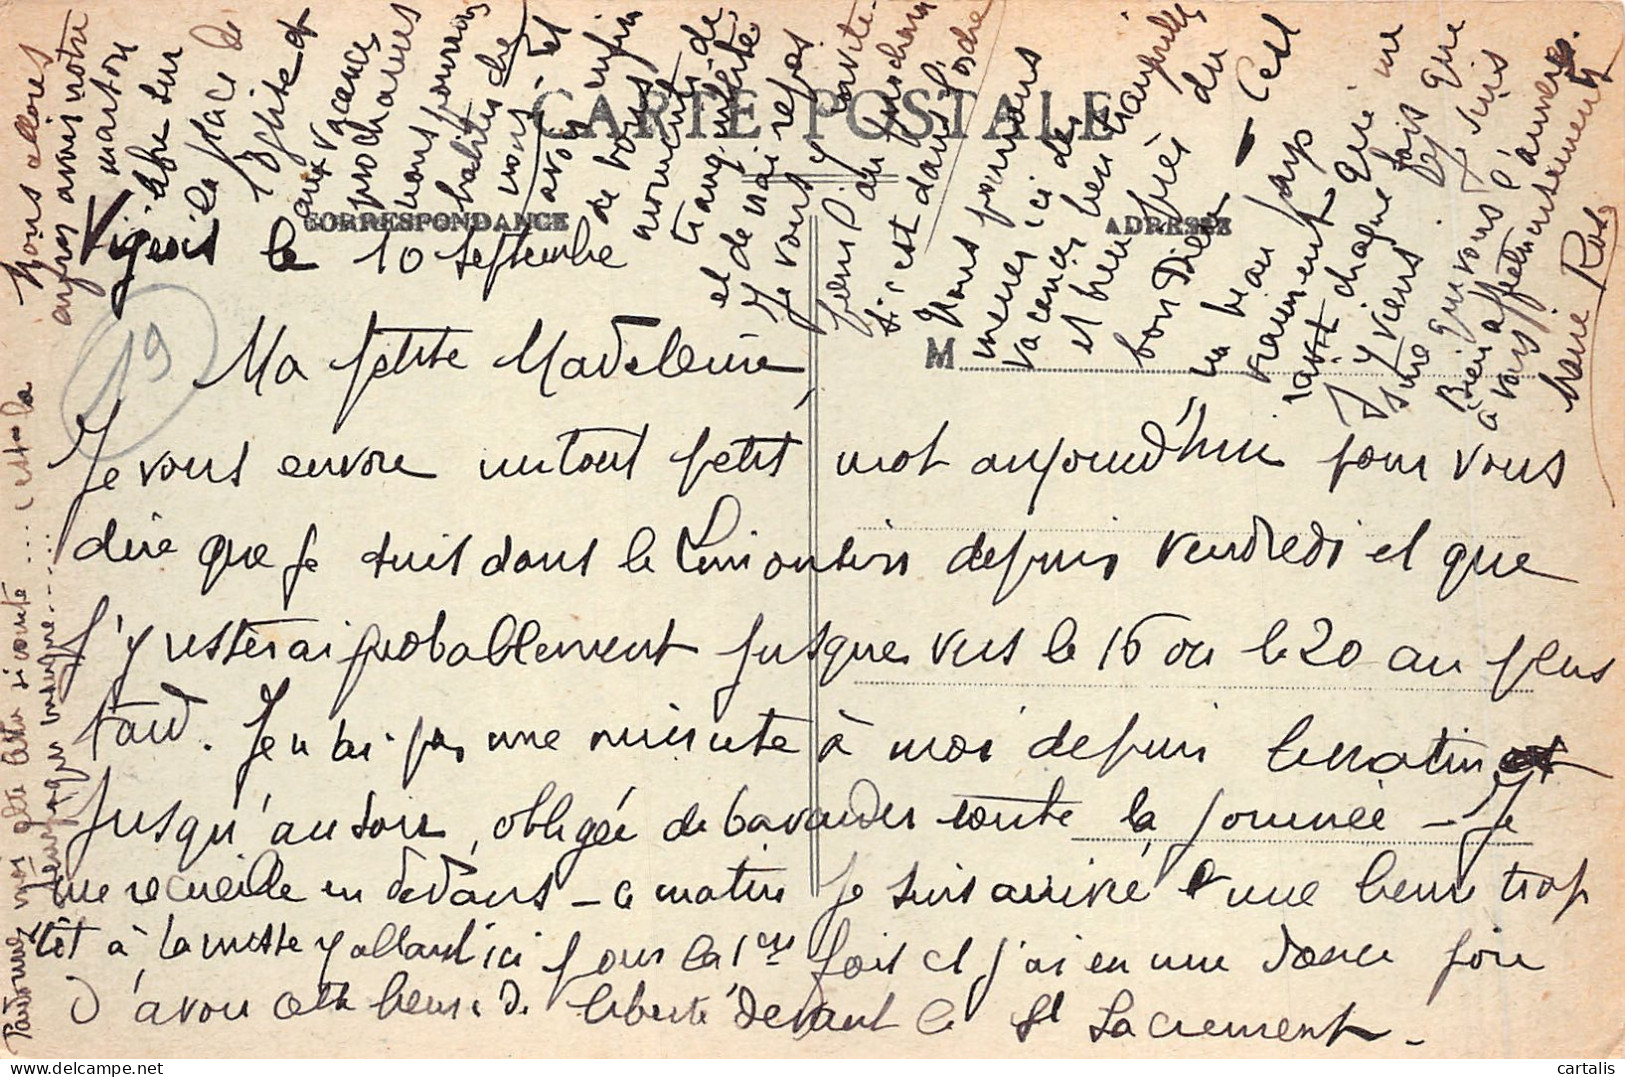 CARTE POSTALE
CORRESPONDANCE
ADRESSE
M
Vigeois le 10 septembre
19
Ma petite Madeleine,
Je vous envoie un tout petit mot aujourd'hui pour vous
dire que je suis dans le Limousin depuis vendredi et que
j'y resterai probablement jusque vers le 16 ou le 20 au plus
tard. Je n'ai pas une minute à moi depuis le matin
jusqu'au soir, obligée de bavarder toute la journée - Je
me recueille en dedans - ce matin je suis arrivée une heure trop
tôt à la messe y allant ici pour la 1ère fois et j'ai eu une douce joie
d'avoir cette heure de liberté devant le St Sacrement -
Nous allons
après avoir notre
maison
libre sur
la place de
l'église et
aux vacances
prochaines
nous pourrons
nous
avoir enfin
de bons
moments de
tranquillité
et de vrai repos
Je vous y invite
pour l'an prochain
si c'est dans
Nous pourrons
mener ici des
vacances bien tranquilles
et bien près du
bon Dieu - C'est
un beau pays
vraiment qui me
ravit chaque fois que
j'y viens. Je suis
sûre que vous l'aimerez.
Bien affectueusement
à vous
Marie Rose
Pardonnez moi cette lettre si courte .... c'est la
temps qui manque....
cartalis